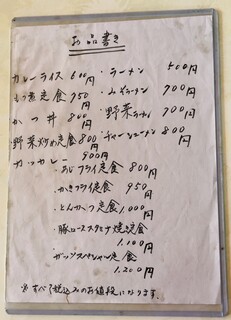 お品書き
カレーライス 600円 ・ラーメン 500円
もつ煮定食 750円 ・みそラーメン 700円
かつ丼 800円 ・野菜ラーメン 700円
・野菜炒め定食 800円 ・チャーシューメン 800円
カツカレー 900円
・あじフライ定食 800円
・かきフライ定食 950円
・とんかつ定食 1,000円
・豚ローススタミナ焼き定食 1,100円
ガッツスペシャル定食 1,200円
※すべて税込みのお値段になります。